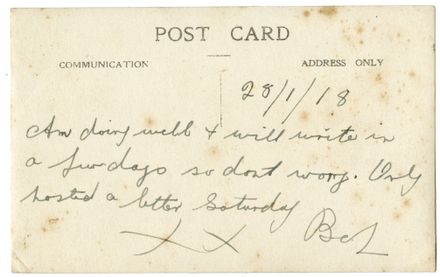 POST CARD
COMMUNICATION ADDRESS ONLY
28/1/18
Am doing well & will write in
a few days so dont worry. Only
posted a letter Saturday
XX Bert